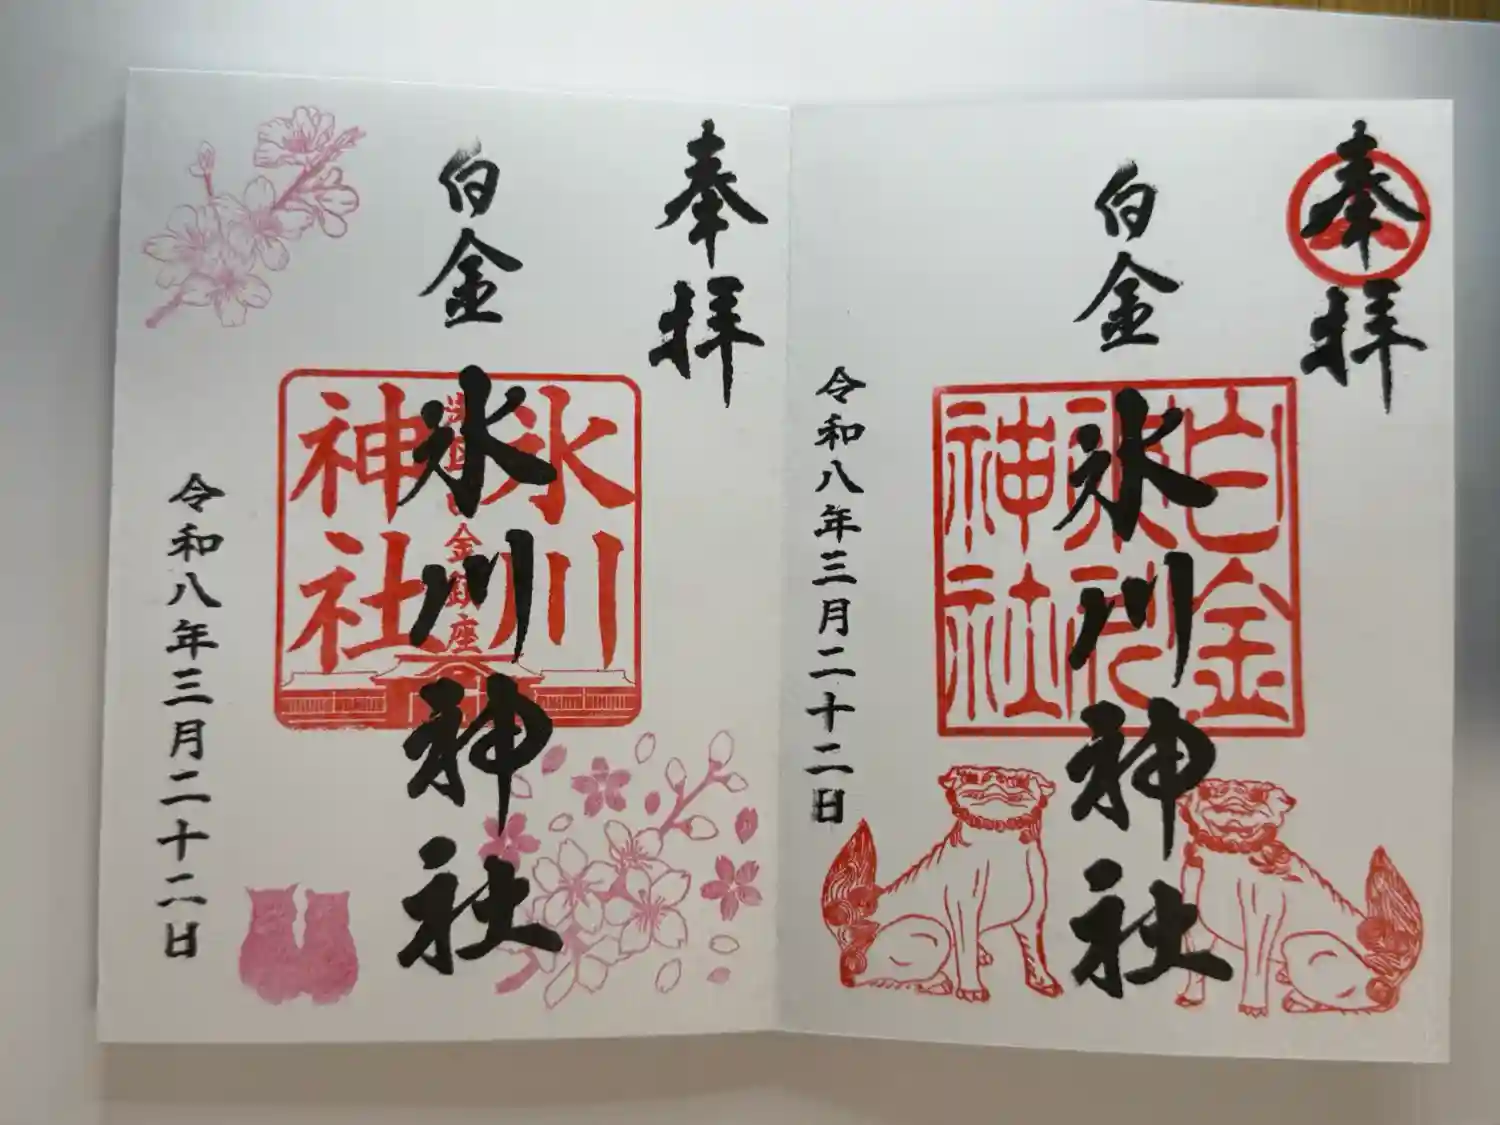 奉拝
白金
氷川神社
白金
氷川
神社
令和八年三月二十二日
奉拝
白金
氷川神社
氷川
神社
金
鎮座
令和八年三月二十二日